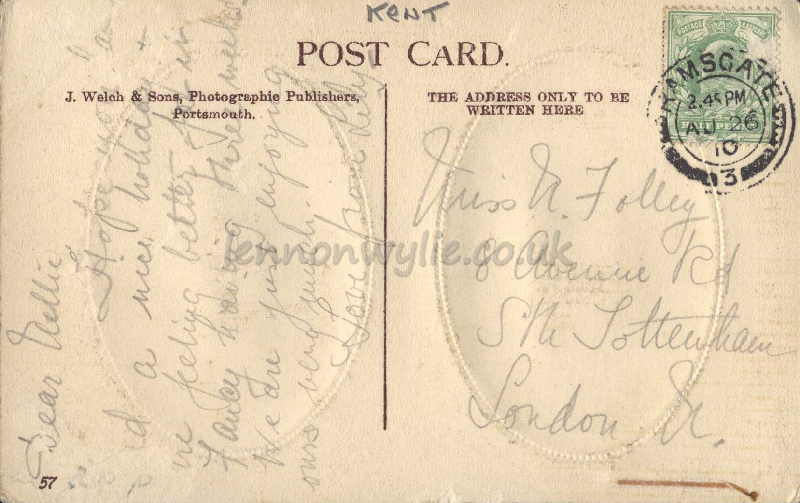 KENT
POST CARD.
J. Welch & Sons, Photographic Publishers,
Portsmouth.
THE ADDRESS ONLY TO BE
WRITTEN HERE
POSTAGE
RAMSGATE
2.45 PM
AU 26
10
03
Dear Nellie
Hope
a nice holiday &
feeling better
Fancy having three weeks
We are just enjoying
ours being
Love from
Miss N. Folley
8 Avenue Rd
Sth Tottenham
London N.
lennonwylie.co.uk
57